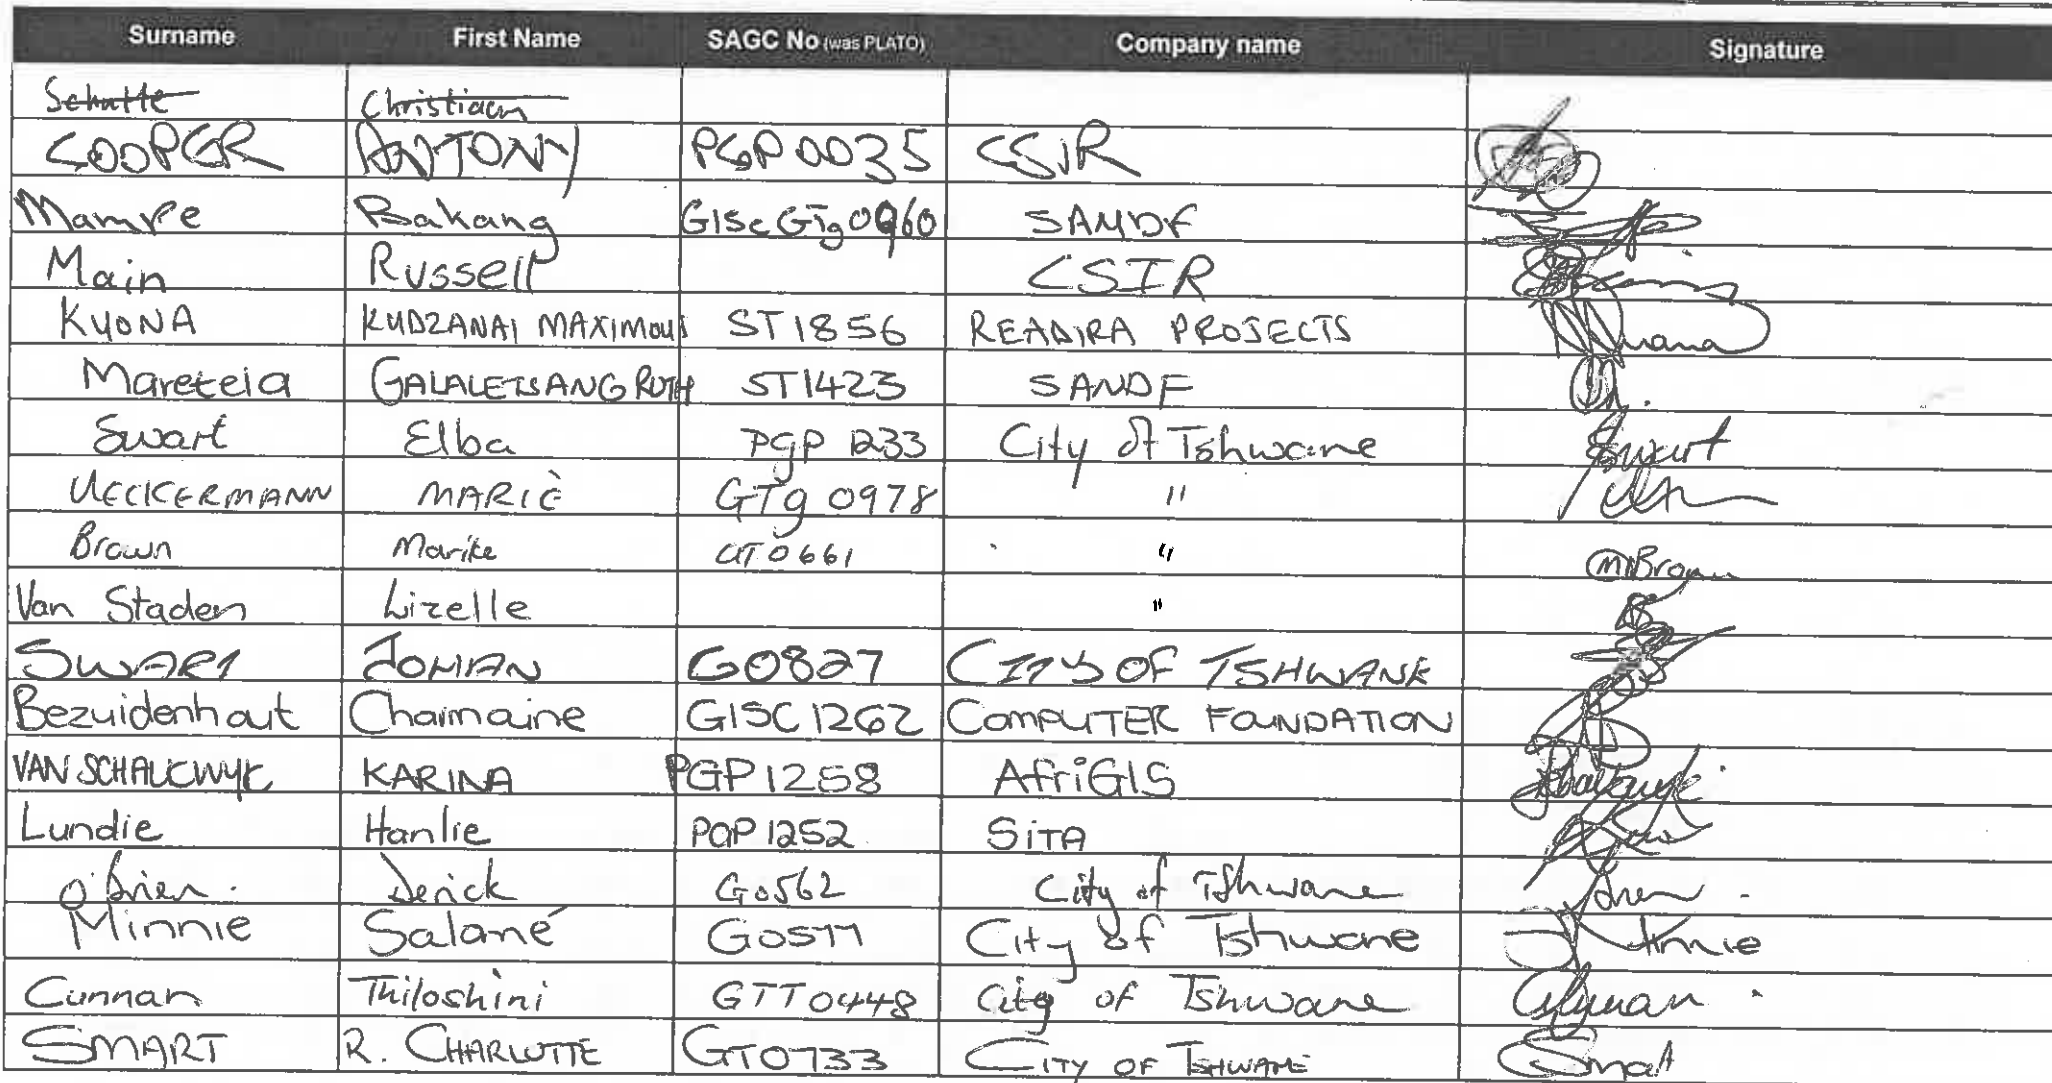 Surname First Name SAGC No (was PLATO) Company name Signature
Schutte Christiaan
COOPER ANTONY PGP0035 CSIR
Mampe Bakang GISc GTg0960 SANDF
Main Russell CSIR
KYONA KUDZANAI MAXIMOUS ST1856 READIRA PROJECTS
Maretela GALALETSANG RUTH ST1423 SANDF
Swart Elba PGP 1233 City of Tshwane Swart
UECKERMANN MARIÈ GTg 0978 "
Brown Marike GT0661 " MBrown
Van Staden Lizelle "
SWART JOHAN G0827 CITY OF TSHWANE
Bezuidenhout Charmaine GISC1262 COMPUTER FOUNDATION
VAN SCHALKWYK KARINA PGP1258 AfriGIS
Lundie Hanlie PGP1252 SITA
O'Brien. Derick G0562 City of Tshwane
Minnie Salané G0577 City of Tshwane
Cunnan Thiloshini GTT0448 City of Tshwane
SMART R. CHARLOTTE GT0733 CITY OF TSHWANE